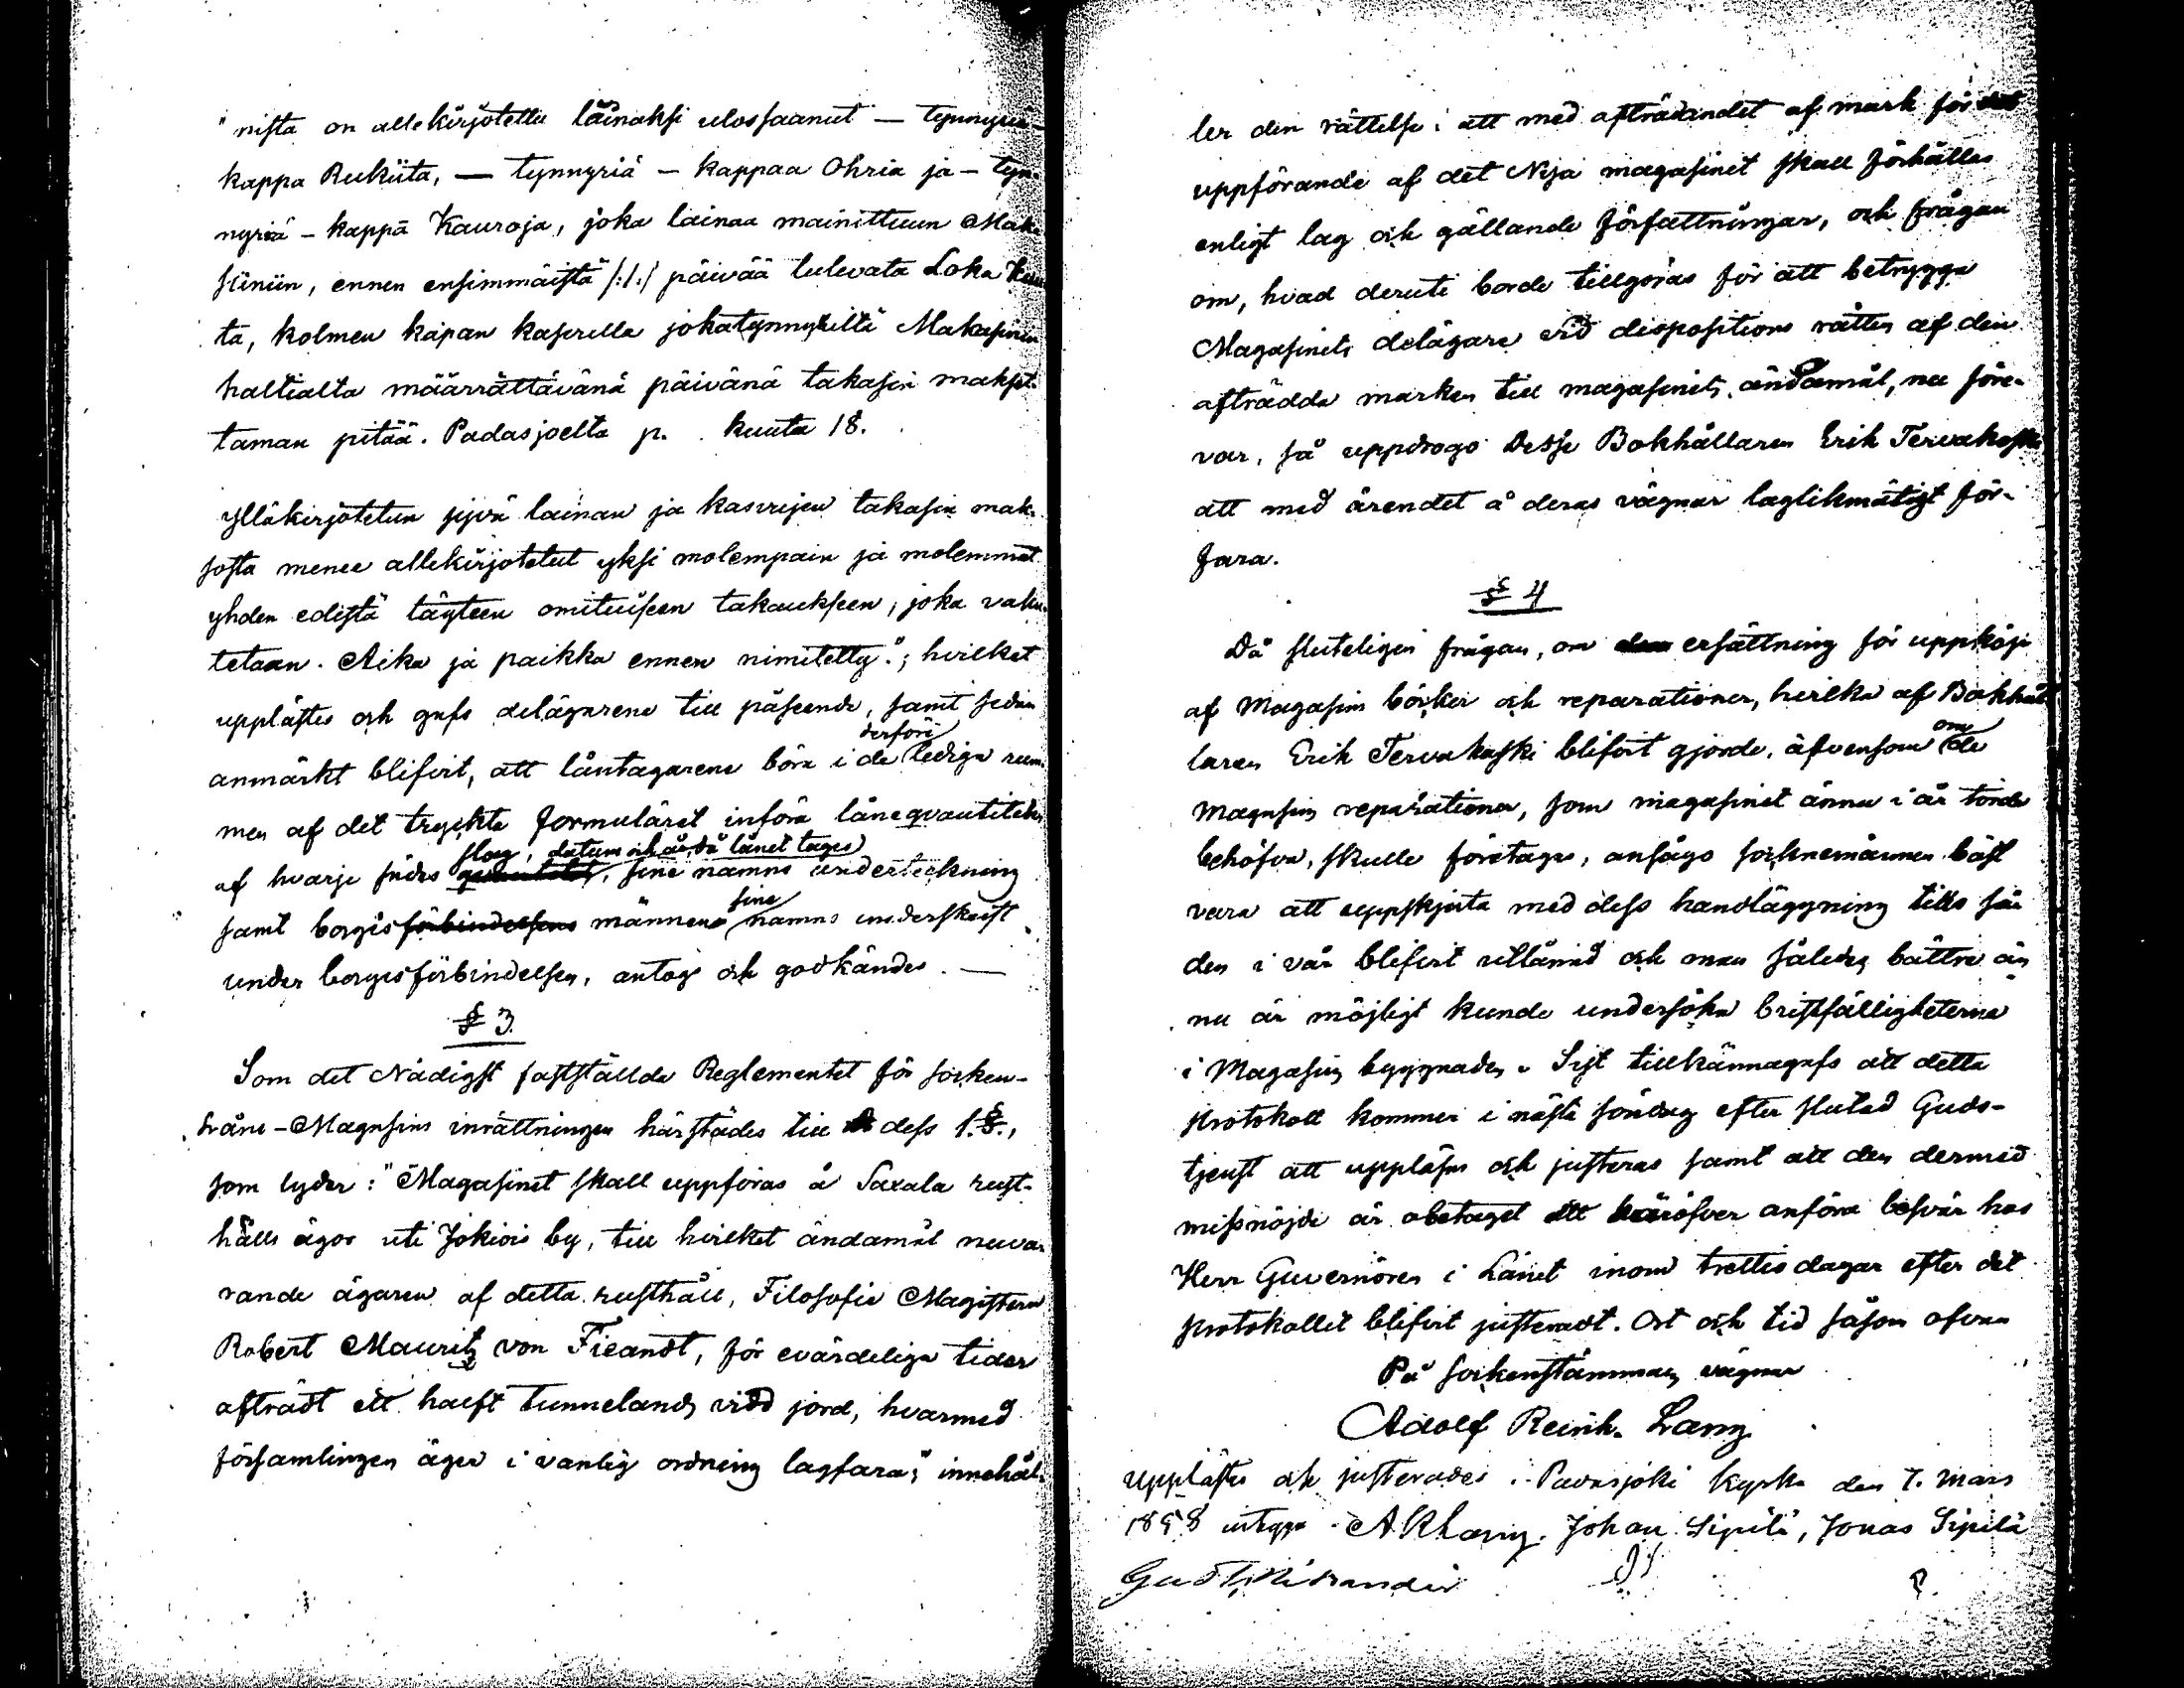 "nista on allekirjotettu lainaksi ulossaanut — tynnyriä —
kappa Rukiita, — tynnyriä — kappaa Ohria ja — tyn-
nyriä — kappa Kauroja, joka lainaa mainittuun Maka
siiniin, ennen ensimmäistä /:1:/ päivää tulevata Loka kuu
ta, kolmen kapan kasvulla jokatynnyriltä Makasiinin
haltialta määrrättävänä päivänä takasin makset-
taman pitää. Padasjoelta p. kuuta 18.
ylläkirjotetun siyvä lainan ja kasvujen takasin mak-
sosta menee allekirjotetut yksi molempain ja molemmat
yhden edistä täyteen omituiseen takaukseen, joka vaku-
tetaan. Aika ja paikka ennen nimitetty."; hvilket
upplästes och gafs delägarene till påseende, samt sedan
anmärkt blifvit, att låntagarene böra i de derföre lediga rum-
men af det tryckta formuläret införa lånequantiteten
af hvarje sädes slag, datum och år, då lånet tages, sine namns underteckning
samt borgisförbindelsens männene sine namns underskrift
under borgesförbindelsen, antogs och godkändes. —
§ 3.
Som det Nådigst fastställda Reglementet för socken-
Låne-Magasins inrättningen härstädes till dess 1. §.,
som lyder: "Magasinet skall uppföras å Saxala rust-
hålls ägor uti Jokiois by, till hvilket ändamål nuva-
rande ägaren af detta rusthåll, Filosofie Magistern
Robert Mauritz von Fieandt, för evärdeliga tider
afträdt ett halft tunnelands vidd jord, hvarmed
församlingen äger i vanlig ordning lagfara", innehål-
ler den rättelse: att med afträdandet af mark för det
uppförande af det Nya magasinet skall förhållas
enligt lag och gällande författningar, och frågan
om, hvad deruti borde tillgöras för att betrygga
Magasinets delägare vid dispositions rätten af den
afträdda marken till magasinets ändamål, nu före-
var, så uppdrogo Desse Bokhållaren Erik Tervakoski
att med ärendet å deras vägnar laglikmätigt för-
fara.
§ 4
Då sluteligen frågan, om den ersättning för uppköp
af Magasins böcker och reparationer, hvilka af Bokhål
laren Erik Tervakoski blifvit gjorde, äfvensom om de
Magasins reparationer, som magasinet ännu i år torde
behöfva, skulle företages, ansågo socknemännen bäst
vara att uppskjuta med dess handläggning tills sä
den i vår blifvit utlånad och man således bättre än
nu är möjligt kunde undersöka bristfälligheterna
i Magasins byggnaden. Sist tillkännagafs att detta
protokoll kommer i nästa söndag efter slutad Guds-
tjenst att uppläsas och justeras samt att den dermed
missnöjde är obetaget att häröfver anföra besvär hos
Herr Guvernören i Länet inom trettio dagar efter det
protokollet blifvit justeradt. Ort och tid såsom ofvan
På sockenstämmans vägnar
Adolf Reinh. Lang
Upplästes och justerades i Padasjoki kyrka den 7. Mars
1858 intyga. A R Lang. Johan Sipilä, Jonas Sipilä